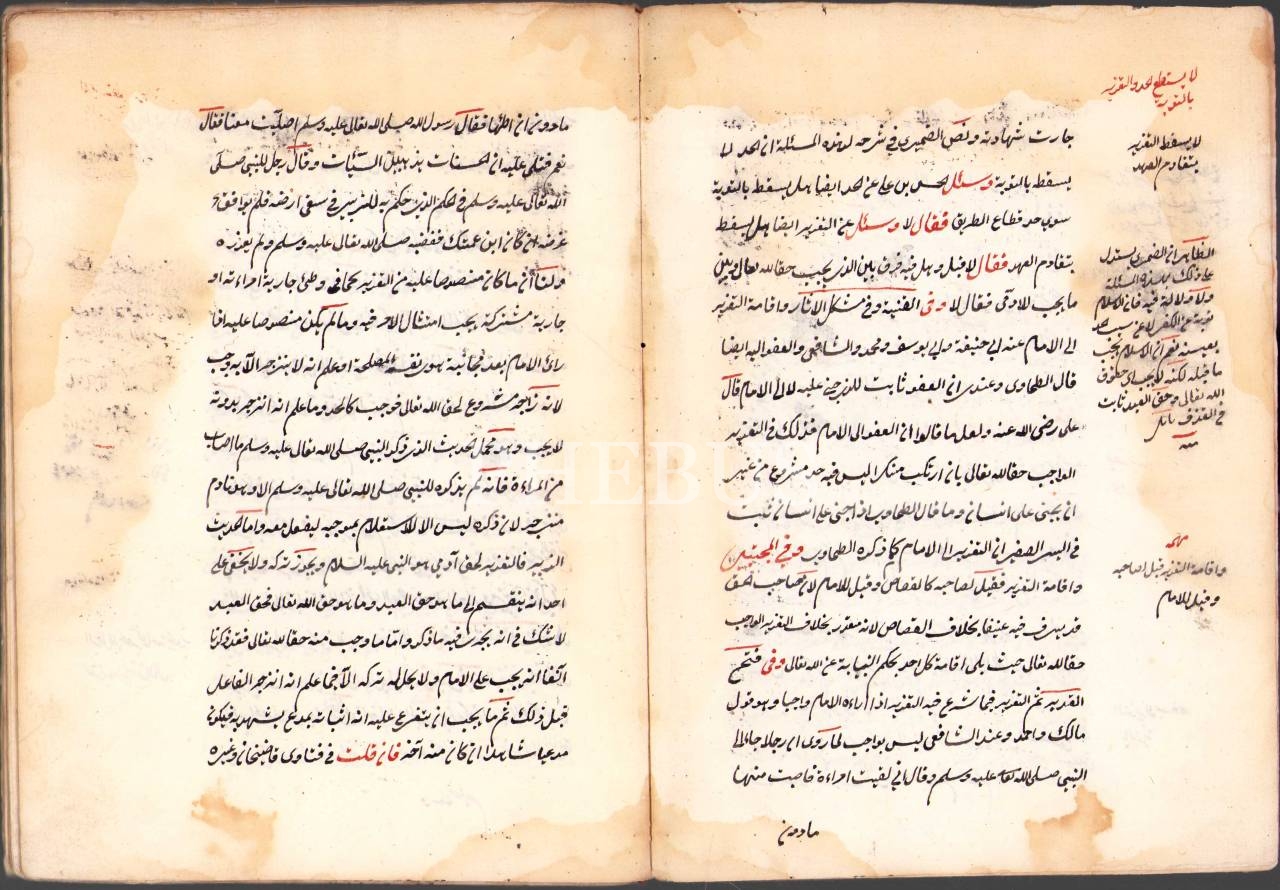 جازت شهادته ونص الضميري في شرحه لهذه المسئلة ان الحد لا
يسقط بالتوبة وسئل الحسن بن علي عن الحد ايضا هل يسقط بالتوبة
سوى حد قطاع الطريق فقال لا وسئل عن التعزير ايضا هل يسقط
بتقادم العهد فقال لا قيل وهل فيه فرق بين الذي يجب حقا لله تعالى وبين
ما يجب للادمي فقال لا وفي القنية وفي مشكل الاثار واقامة التعزير
الى الامام عند ابي حنيفة وابي يوسف ومحمد والشافعي والعفو اليه ايضا
قال الطحاوي وعندي ان العفو ثابت للذي جني عليه لا الى الامام قال
علي رضي الله عنه ولعل ما قالوا ان العفو الى الامام فذلك في التعزير
الواجب حقا لله تعالى بان ارتكب منكرا ليس فيه حد مشروع من غير
ان يجني على انسان وما قال الطحاوي اذا جني على انسان ثبت
في السير الصغير ان التعزير الى الامام كما ذكره الطحاوي وفي المجتبى
واقامة التعزير فقيل لصاحبه كالقصاص وقيل للامام لان صاحب الحق
قد يسرف فيه عنفا بخلاف القصاص لانه مقدر بخلاف التعزير الواجب
حقا لله تعالى حيث يلي اقامة كل احد بحكم النيابة عن الله تعالى وفي فتح
القدير ثم التعزير فيما شرع فيه التعزير اذا رآه الامام واجبا وهو قول
مالك واحمد وعند الشافعي ليس بواجب لما روى ان رجلا جاء الى
النبي صلى الله تعالى عليه وسلم وقال اني لقيت امراءة فاصبت منها
ما دون
لا يسقط الحد والتعزير
بالتوبة
لا يسقط التعزير
بتقادم العهد
الظاهر ان الضميري يستدل
على ذلك بهذه المسئلة
ولا دلالة فيه فان الاسلام
توبة عن الكفر لا عن سبب حد
بعينه نعم ان الاسلام يجب
ما قبله لكنه لا يجب اي حقوق
الله تعالى وحق العبد ثابت
في القذف تأمل
مهمه
واقامة التعزير قيل لصاحبه
وقيل للامام
ما دون ان اطئها فقال رسول الله صلى الله تعالى عليه وسلم اصليت معنا فقال
نعم فتلى عليه ان الحسنات يذهبن السيّئات وقال رجل للنبي صلى
الله تعالى عليه وسلم في الحكم الذي حكم به للزبير في سقي ارضه فلم يوافق
غرضه ان كان ابن عمتك فغضب صلى الله تعالى عليه وسلم ولم يعزره
ولنا ان ما كان منصوصا عليه من التعزير كما في وطئ جارية امراءته او
جارية مشتركة يجب امتثال الامر فيه وما لم يكن منصوصا عليه اذا
راى الامام بعد مجانبة هوى نفسه المصلحة او علم انه لا ينزجر الا به وجب
لانه زاجر مشروع لحق الله تعالى فوجب كالحد وما علم انه انزجر بدونه
لا يجب وهو محمل الحديث الذي ذكر النبي صلى الله تعالى عليه وسلم ما اصاب
من المراءة فانه لم يذكره للنبي صلى الله تعالى عليه وسلم الا وهو نادم
منزجر لان ذكره ليس الا للاستعلام بموجبه ليفعل معه واما حديث
الزبير فالتعزير لحق آدمي هو النبي عليه السلام ويجوز تركه ولا يخفى على
احد انه ينقسم الى ما هو حق العبد وما هو حق الله تعالى فحق العبد
لا شك في انه يجري فيه ما ذكر واما ما وجب منه حقا لله تعالى فقد ذكرنا
آنفا انه يجب على الامام ولا يحل له تركه الا فيما علم انه انزجر الفاعل
قبل ذلك ثم ما يجب ان يتفرع عليه انه اثباته بمدع يشهد به فيكون
مدعيا شاهدا ان كان معه آخر فان قلت في فتاوى قاضيخان وغيره